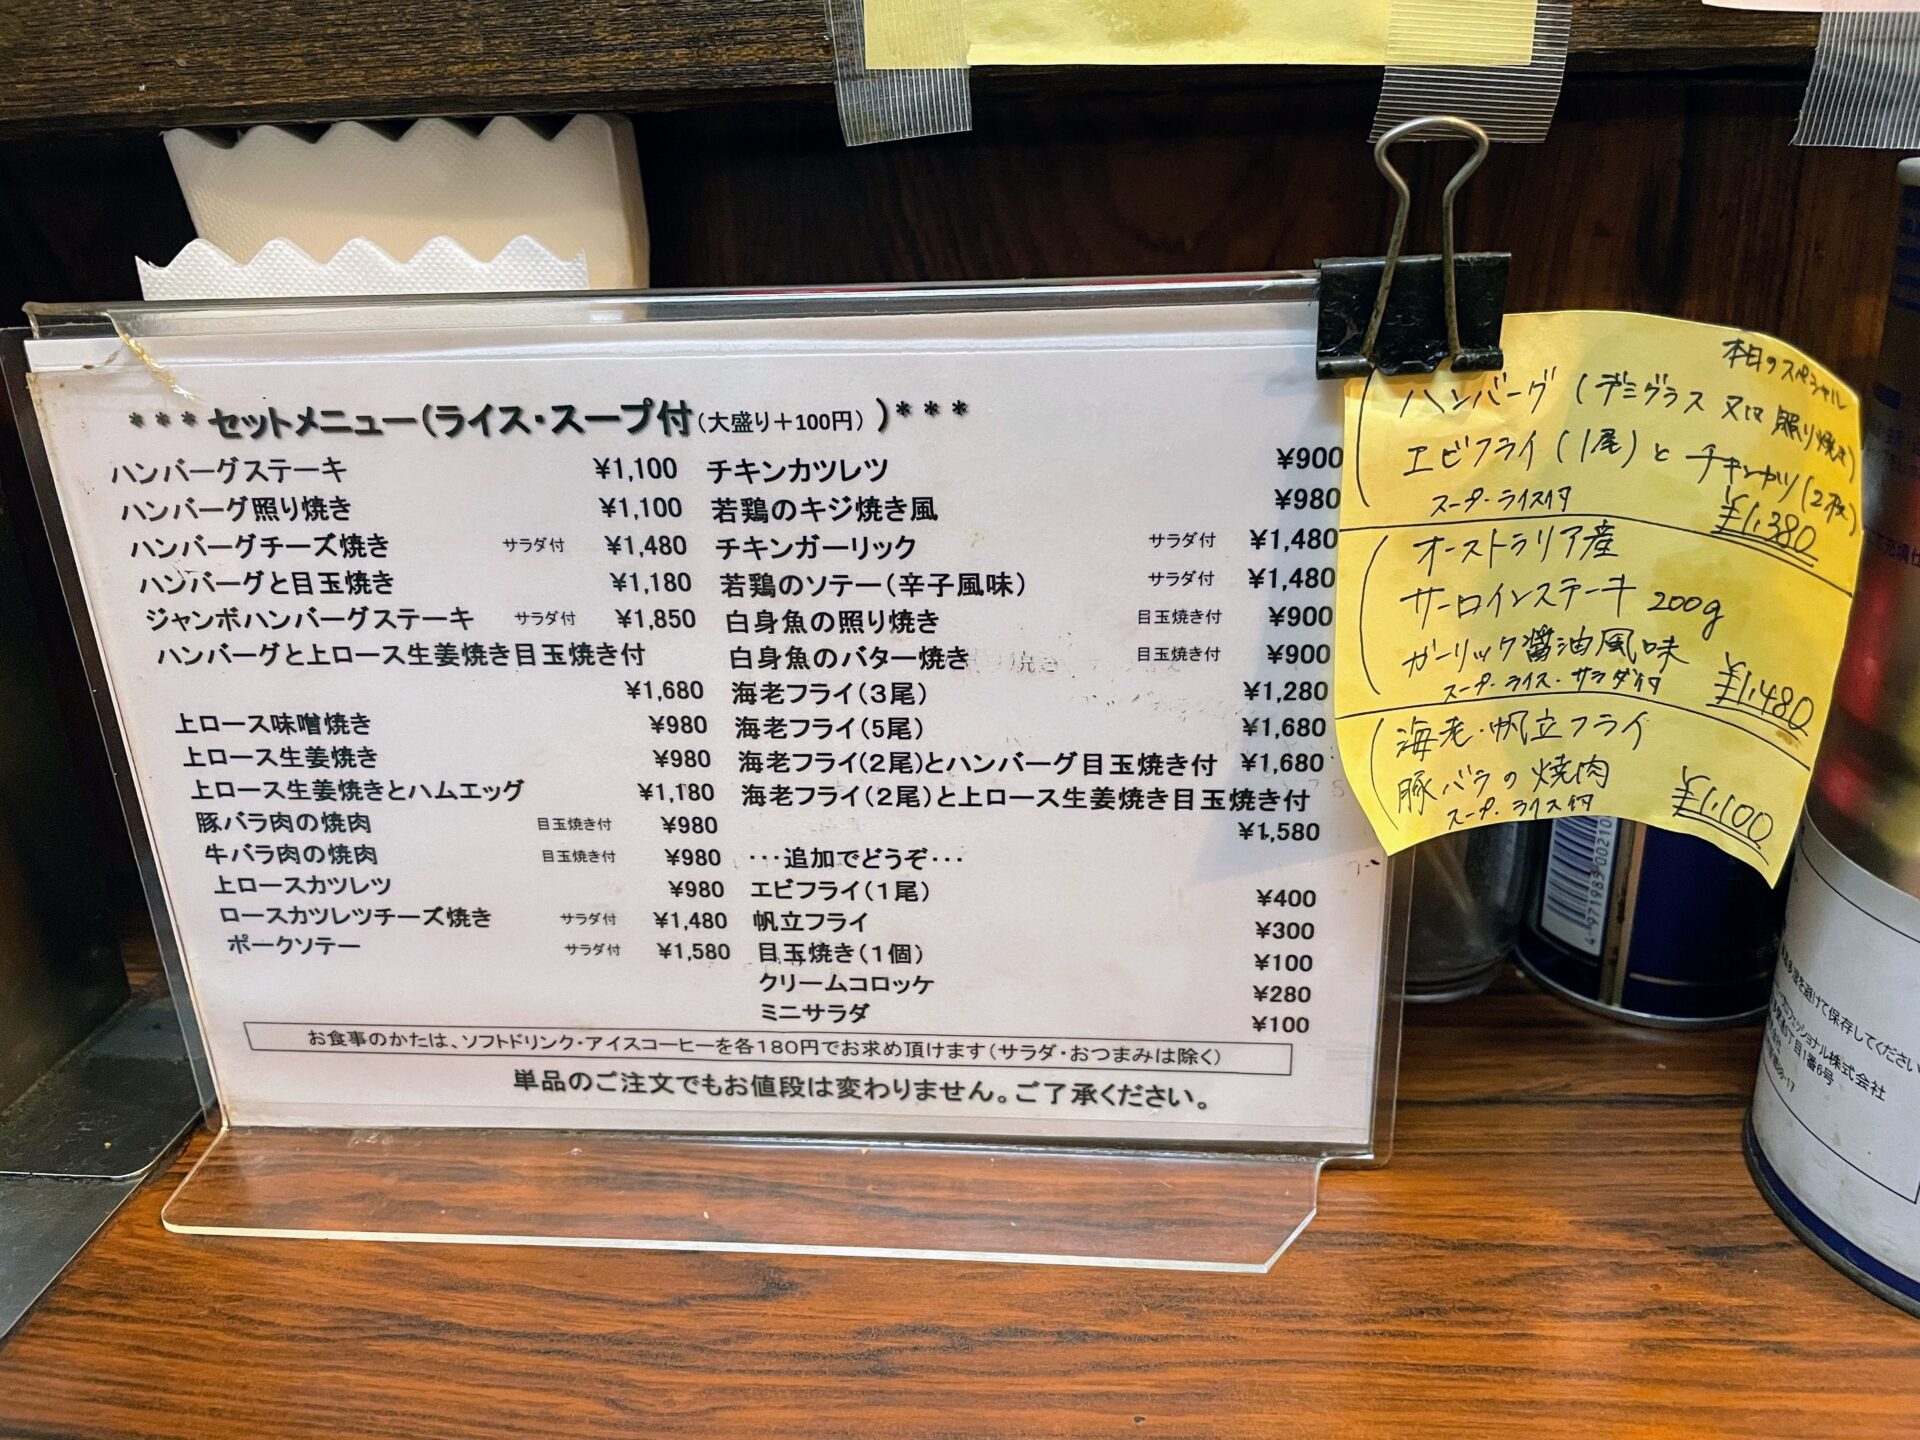 ***セットメニュー(ライス・スープ付(大盛り+100円))***
ハンバーグステーキ ¥1,100
ハンバーグ照り焼き ¥1,100
ハンバーグチーズ焼き サラダ付 ¥1,480
ハンバーグと目玉焼き ¥1,180
ジャンボハンバーグステーキ サラダ付 ¥1,850
ハンバーグと上ロース生姜焼き目玉焼き付
¥1,680
上ロース味噌焼き ¥980
上ロース生姜焼き ¥980
上ロース生姜焼きとハムエッグ ¥1,180
豚バラ肉の焼肉 目玉焼き付 ¥980
牛バラ肉の焼肉 目玉焼き付 ¥980
上ロースカツレツ ¥980
ロースカツレツチーズ焼き サラダ付 ¥1,480
ポークソテー サラダ付 ¥1,580
チキンカツレツ ¥900
若鶏のキジ焼き風 ¥980
チキンガーリック サラダ付 ¥1,480
若鶏のソテー(辛子風味) サラダ付 ¥1,480
白身魚の照り焼き 目玉焼き付 ¥900
白身魚のバター焼き 目玉焼き付 ¥900
海老フライ(3尾) ¥1,280
海老フライ(5尾) ¥1,680
海老フライ(2尾)とハンバーグ目玉焼き付 ¥1,680
海老フライ(2尾)と上ロース生姜焼き目玉焼き付
¥1,580
・・・追加でどうぞ・・・
エビフライ(1尾) ¥400
帆立フライ ¥300
目玉焼き(1個) ¥100
クリームコロッケ ¥280
ミニサラダ ¥100
お食事のかたは、ソフトドリンク・アイスコーヒーを各180円でお求め頂けます(サラダ・おつまみは除く)
単品のご注文でもお値段は変わりません。ご了承ください。
本日のスペシャル
ハンバーグ(デミグラス又は照り焼き)
エビフライ(1尾)とチキンカツ(2枚)
スープ・ライス付 ¥1,380
オーストラリア産
サーロインステーキ 200g
ガーリック醤油風味
スープ・ライス・サラダ付 ¥1,480
海老・帆立フライ
豚バラの焼肉
スープ・ライス付 ¥1,100
を避けて保存してください
プロフェッショナル株式会社
丁目1番6号